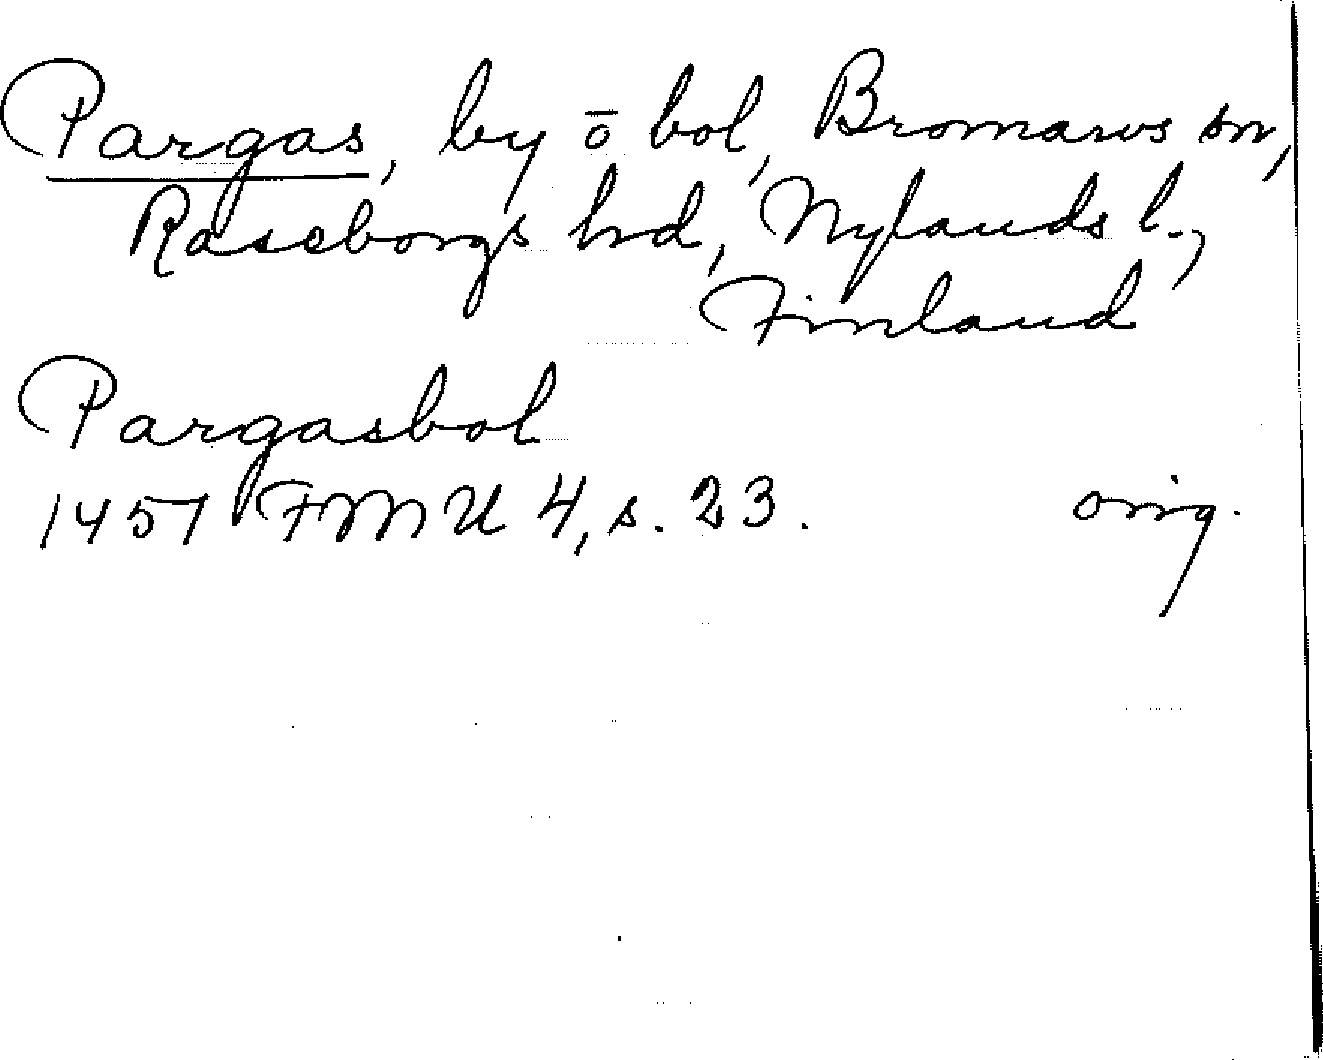 Pargas, by ō bol, Bromarvs sn,
Raseborgs hrd, Nylands l.,
Finland
Pargasbol
1457 FMU 4, s. 23. orig.